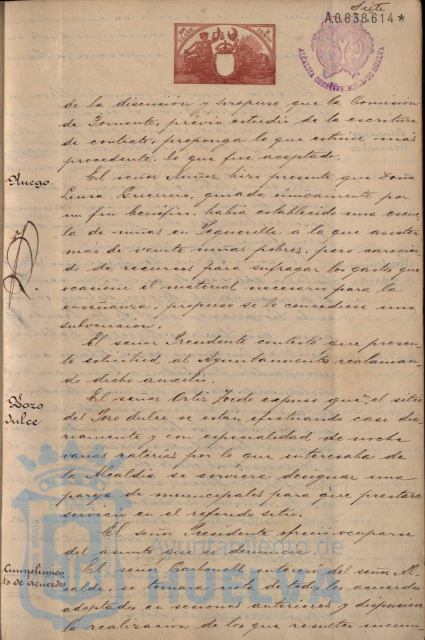 Siete
A.0.838.614*
ALCALDIA CONSTITUCIONAL DE HUELVA
de la discusión y propuso que la Comisión
de Fomento, previo estudio de la escritura
de contrato, proponga lo que estime más
procedente, lo que fué aceptado.
Ruego.
El señor Muñoz hizo presente que Doña
Luisa Guerrero, guiada únicamente por
un fin benéfico, había establecido una escue
la de niñas en Peguerilla á la que asisten
más de veinte niñas pobres, pero carecien
do de recursos para sufragar los gastos que
ocasione el material necesario para la
enseñanza, propuso se le concediese una
subvención.
El señor Presidente contestó que presen
te solicitud al Ayuntamiento reclaman
do dicho auxilio.
Pozo
dulce
El señor Ortiz Zoido expuso que el sitio
del Pozo dulce se están efectuando casi dia
riamente y con especialidad de noche
varias raterías por lo que interesaba de
la Alcaldía se sirviera designar una
pareja de municipales para que prestara
servicio en el referido sitio.
El señor Presidente ofreció ocuparse
del asunto que se denuncia.
Cumplimien
to de acuerdos
El señor Carbonell interesó del señor Al
calde, se tomara nota de todos los acuerdos
adoptados en sesiones anteriores y dispusiera
la realización de los que resulten incum
Ayuntamiento de
HUELVA